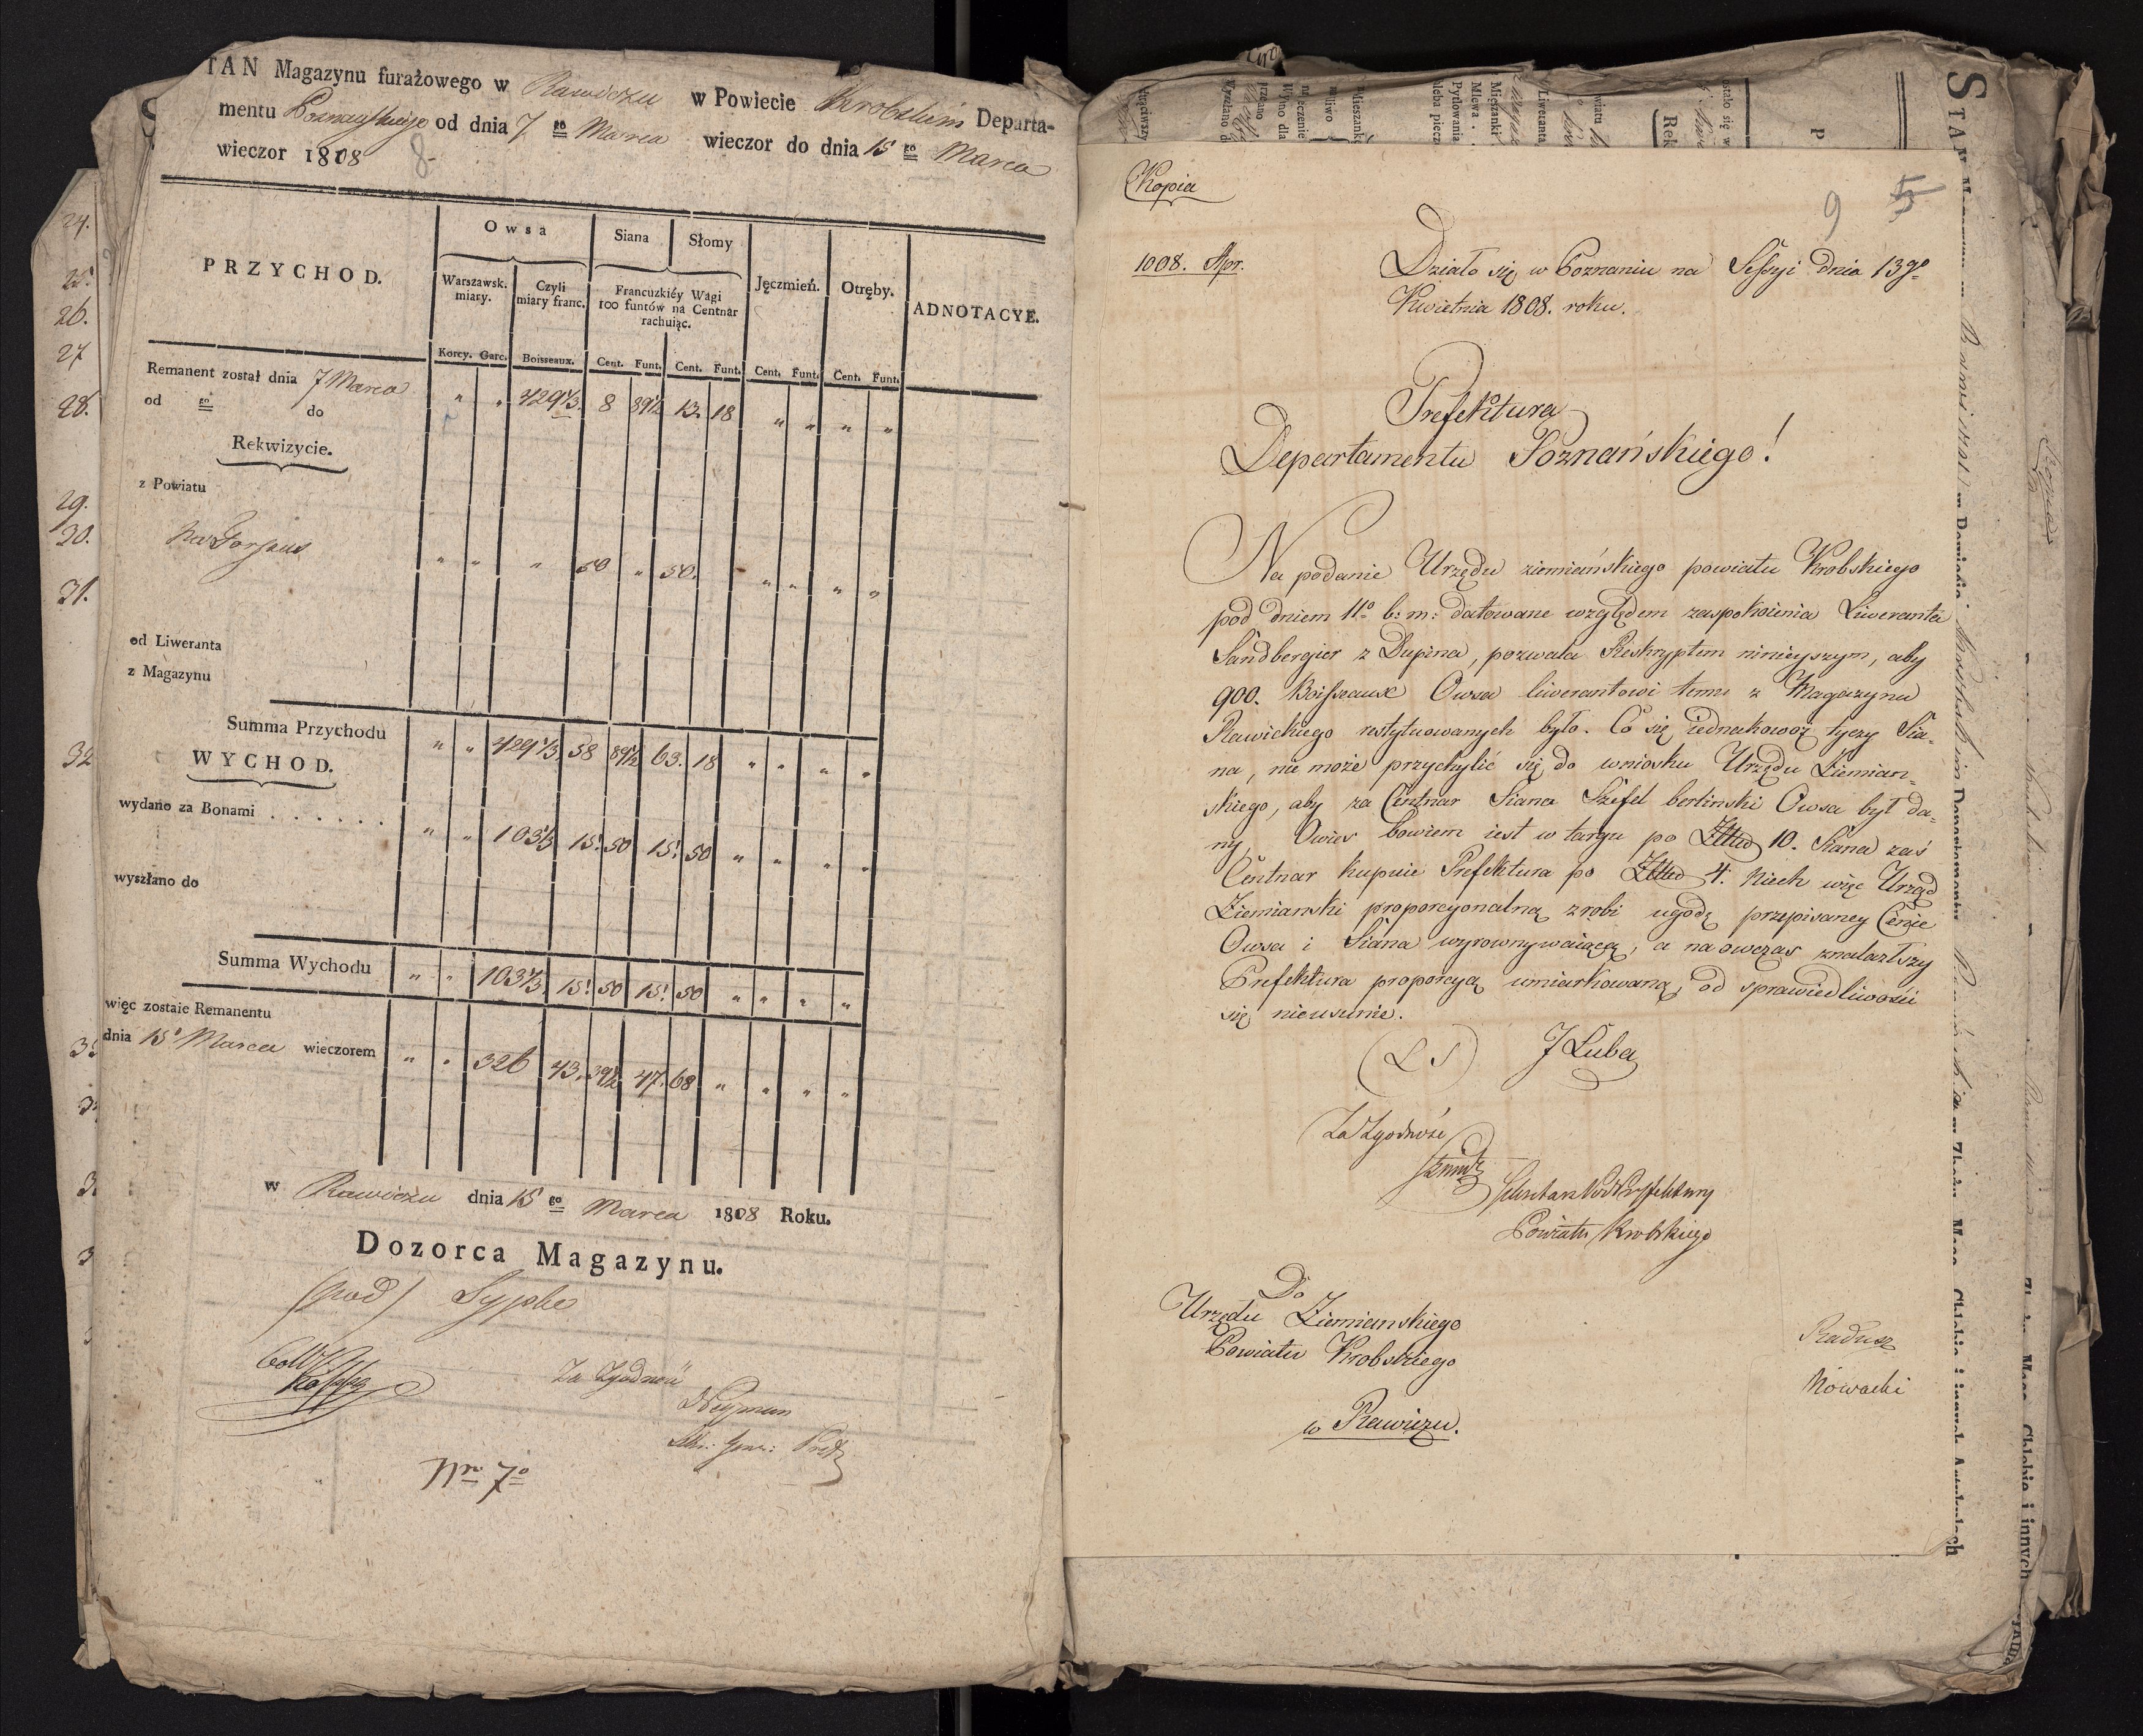 STAN Magazynu furażowego w Rawiczu w Powiecie Krobskim Departa-
mentu Poznańskiego od dnia 7 go Marca wieczor do dnia 15 go Marca
wieczor 1808
8.
PRZYCHOD.
Owsa
Siana
Słomy
Jęczmień.
Otręby.
ADNOTACYE.
Warszawsk. miary.
Czyli miary franc.
Francuzkiéy Wagi
100 funtów na Centnar
rachuiąc.
Korcy. Garc. Boisseaux. Cent. Funt. Cent. Funt. Cent. Funt. Cent. Funt.
Remanent został dnia 7 Marca
od go do
" " 429 1/3. 8 89 1/2 13. 18 " " " "
Rekwizycie.
z Powiatu
" " " 50 " 50. " " " " "
od Liweranta
z Magazynu
Summa Przychodu " " 429 1/3. 58 89 1/2 63. 18 " " " "
WYCHOD.
wydano za Bonami . . . . . . " " 103 1/3 15. 50 15. 50 " " " "
wyszłano do
Summa Wychodu " " 103 1/3. 15. 50 15. 50 " " " "
więc zostaie Remanentu
dnia 15 Marca wieczorem " " 326 43. 39 1/2 47. 68 " " " "
w Rawiczu dnia 15 go Marca 1808 Roku.
Dozorca Magazynu.
(pod) Sypke
Za Zgodność
Nro 7o
24.
25.
26.
27
28.
29.
30.
31.
32
Kopia
9 5
1008. Apr.
Działo się w Poznaniu na Sessyi dnia 13go
Kwietnia 1808. roku.
Prefektura
Departamentu Poznańskiego!
Na podanie Urzędu ziemiańskiego powiatu Krobskiego
pod dniem 11o b: m: datowane względem zaspokoienia Liweranta
Sandbergier z Dupina, pozwala Reskryptem ninieyszym, aby
900. Boisseaux Owsa liwerantowi temu z Magazynu
Rawickiego restytuowanych było. Co się iednakowoż tyczy Sia-
na, nie może przychylić się do wniosku Urzędu Ziemian-
skiego, aby za Centnar Siana Szefel berlinski Owsa był da-
ny. Owies bowiem iest w targu po 10. Siana zaś
Centnar kupuie Prefektura po 4. Niech więc Urząd
Ziemianski proporcyonalną zrobi ugodę przepisaney Cenie
Owsa i Siana wyrownywaiącą, a na owczas znalazłszy
Prefektura proporcyą umiarkowaną, od sprawiedliwości
się nieusunie.
(L S) J Luba
Za Zgodność
Powiatu Krobskiego
Do
Urzędu Ziemianskiego
Powiatu Krobskiego
w Rawiczu.
Radusz
Nowacki